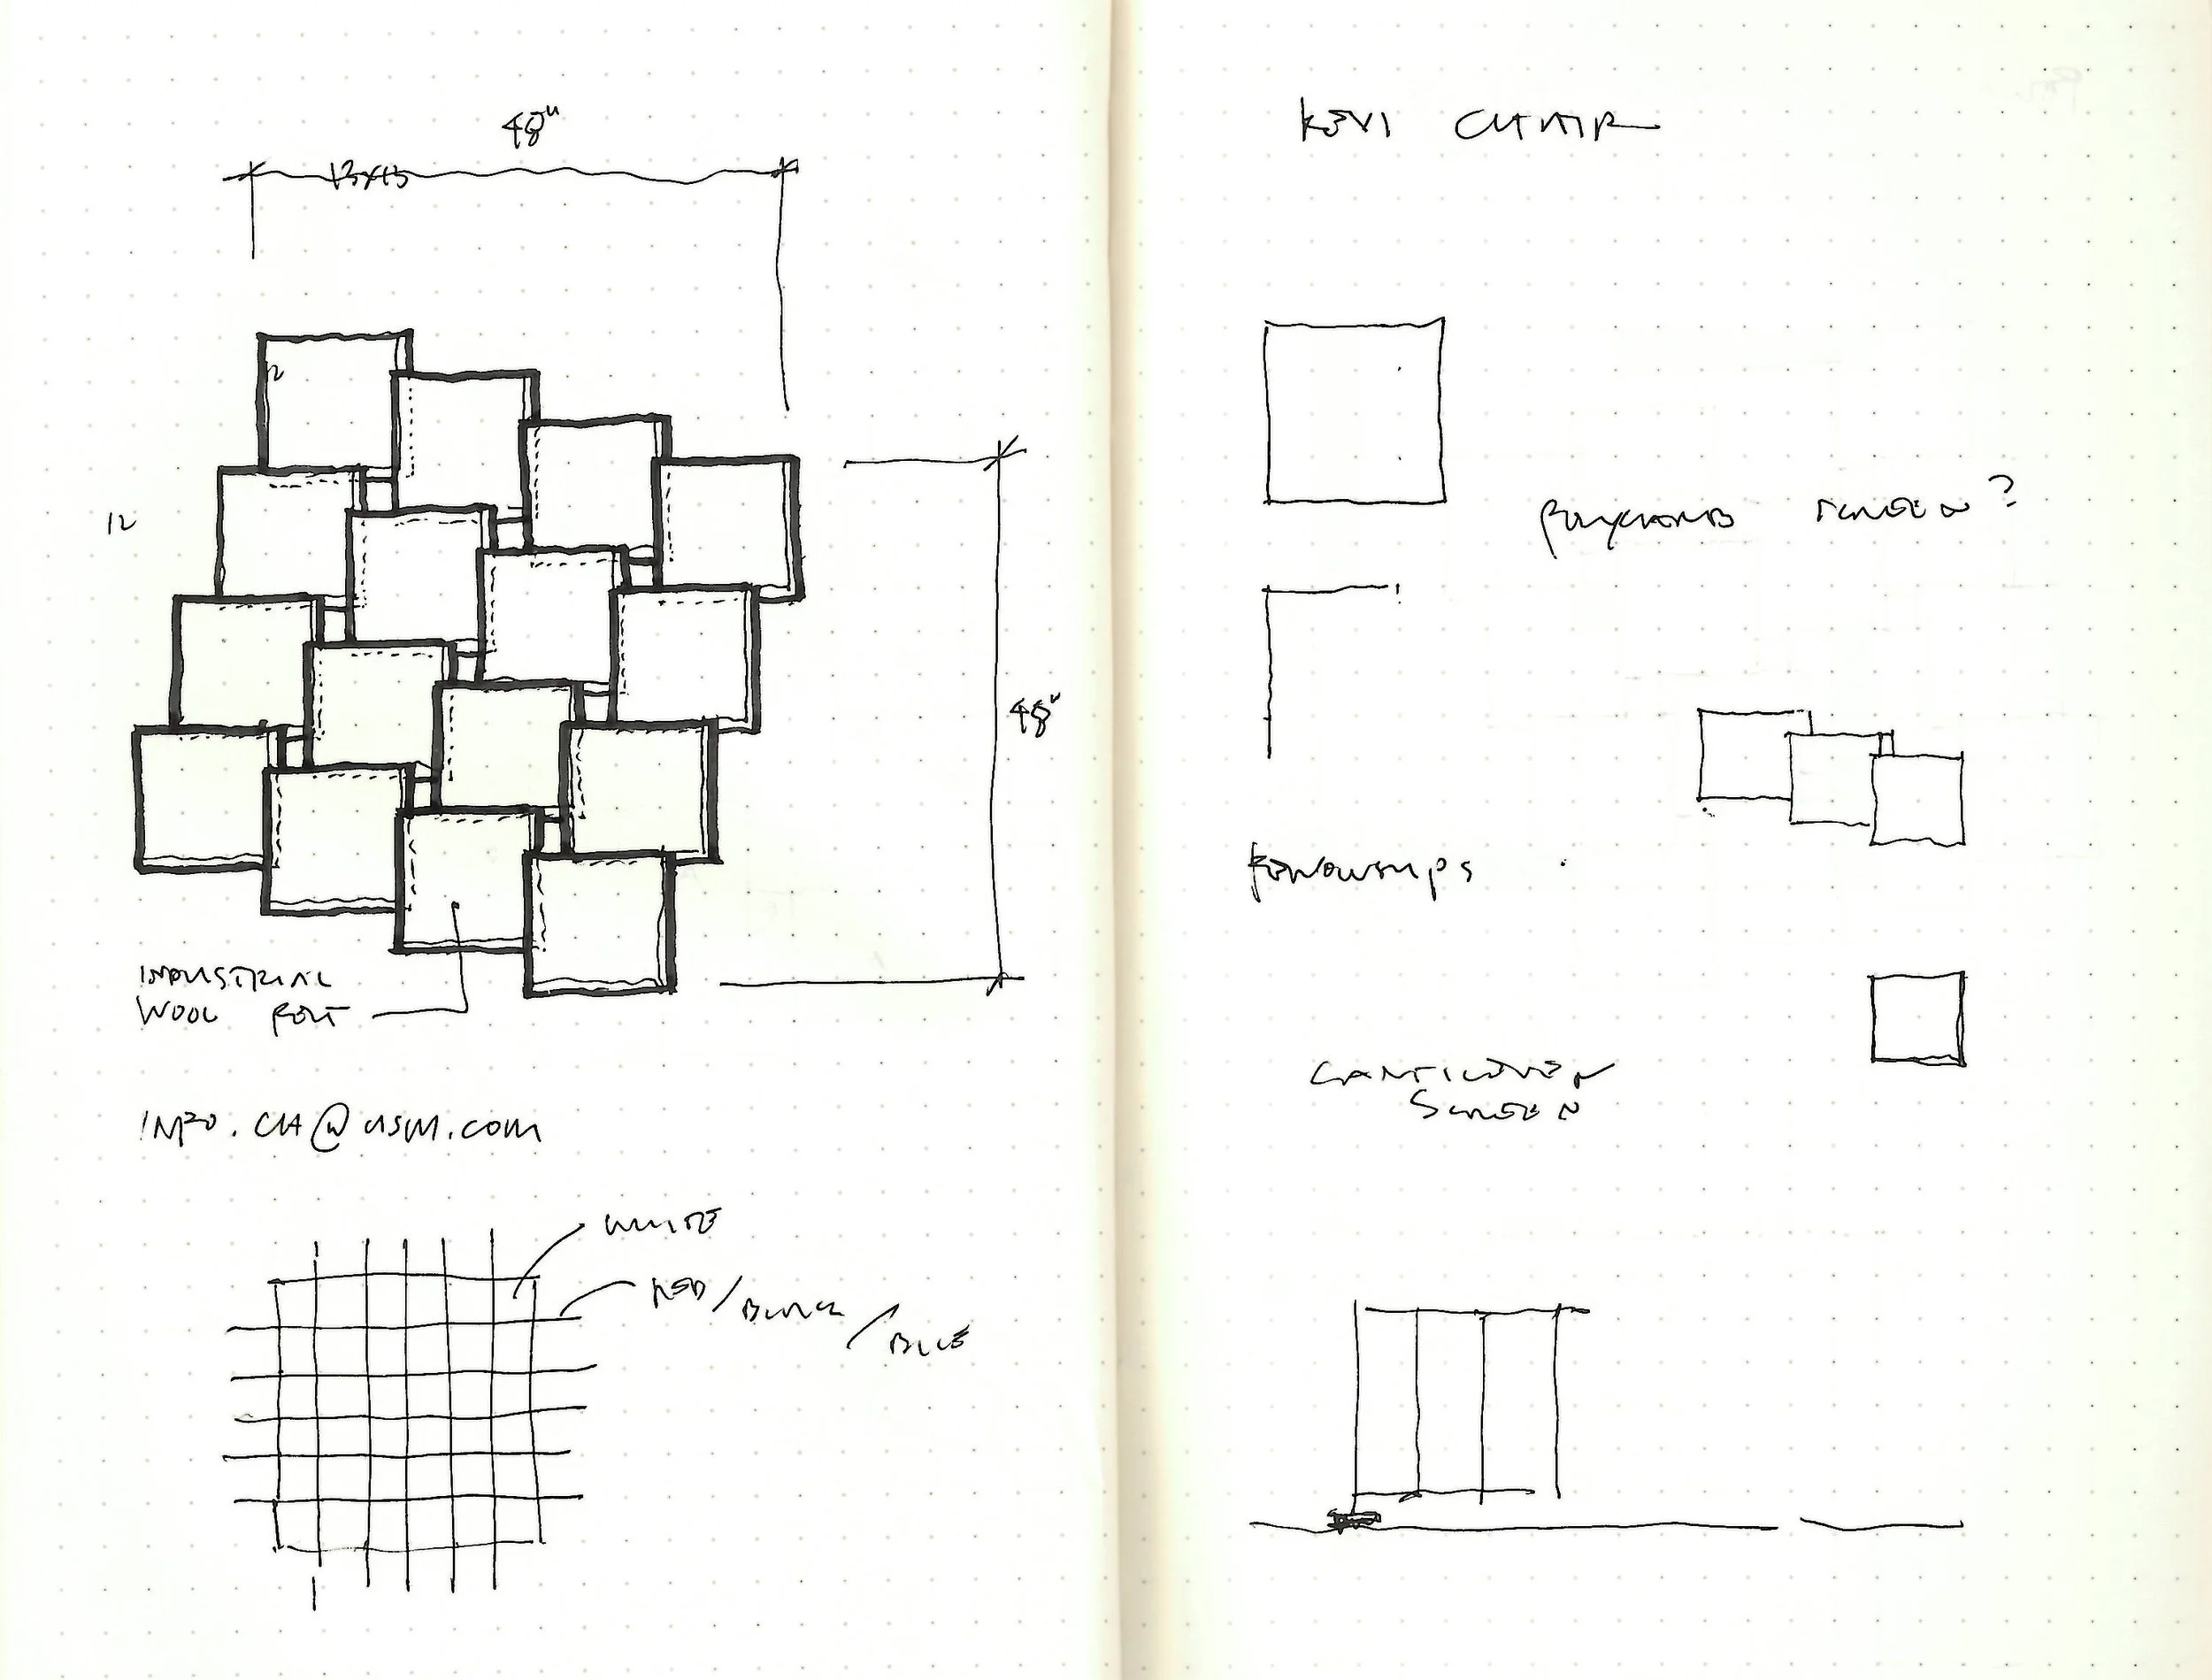 48"
13x13
12
12
48"
INDUSTRIAL
WOOL FELT
INFO.CH@USM.COM
WHITE
RED/BLACK/BLUE
KEVI CHAIR
POLYCARB SCREEN?
FELLOWSHIPS
CANTILEVER
SCREEN